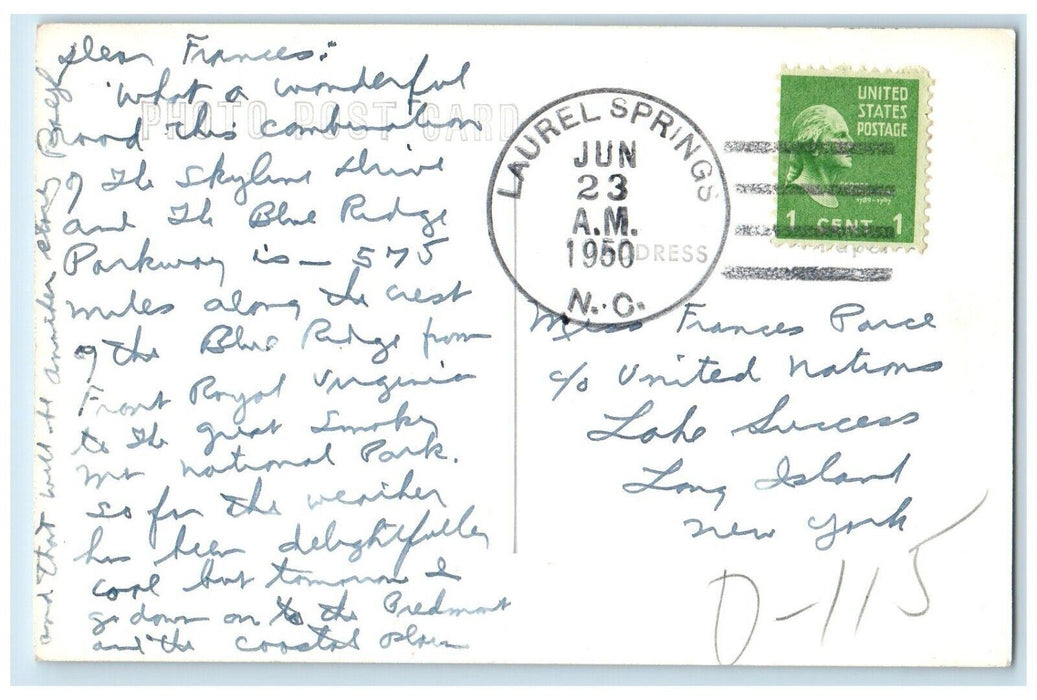 Dear Frances:
What a wonderful
road this combination
of The Skyline Drive
and The Blue Ridge
Parkway is — 575
miles along the crest
of the Blue Ridge from
Front Royal Virginia
to the great Smoky
Mt national Park.
So far the weather
has been delightfully
cool but tomorrow I
go down on to the Piedmont
and the coastal plain
and that will be another story
PHOTO POST CARD
LAUREL SPRINGS
JUN
23
A.M.
1950
N.C.
ADDRESS
UNITED
STATES
POSTAGE
1 CENT 1
Miss Frances Parce
c/o United Nations
Lake Success
Long Island
New York
D-115